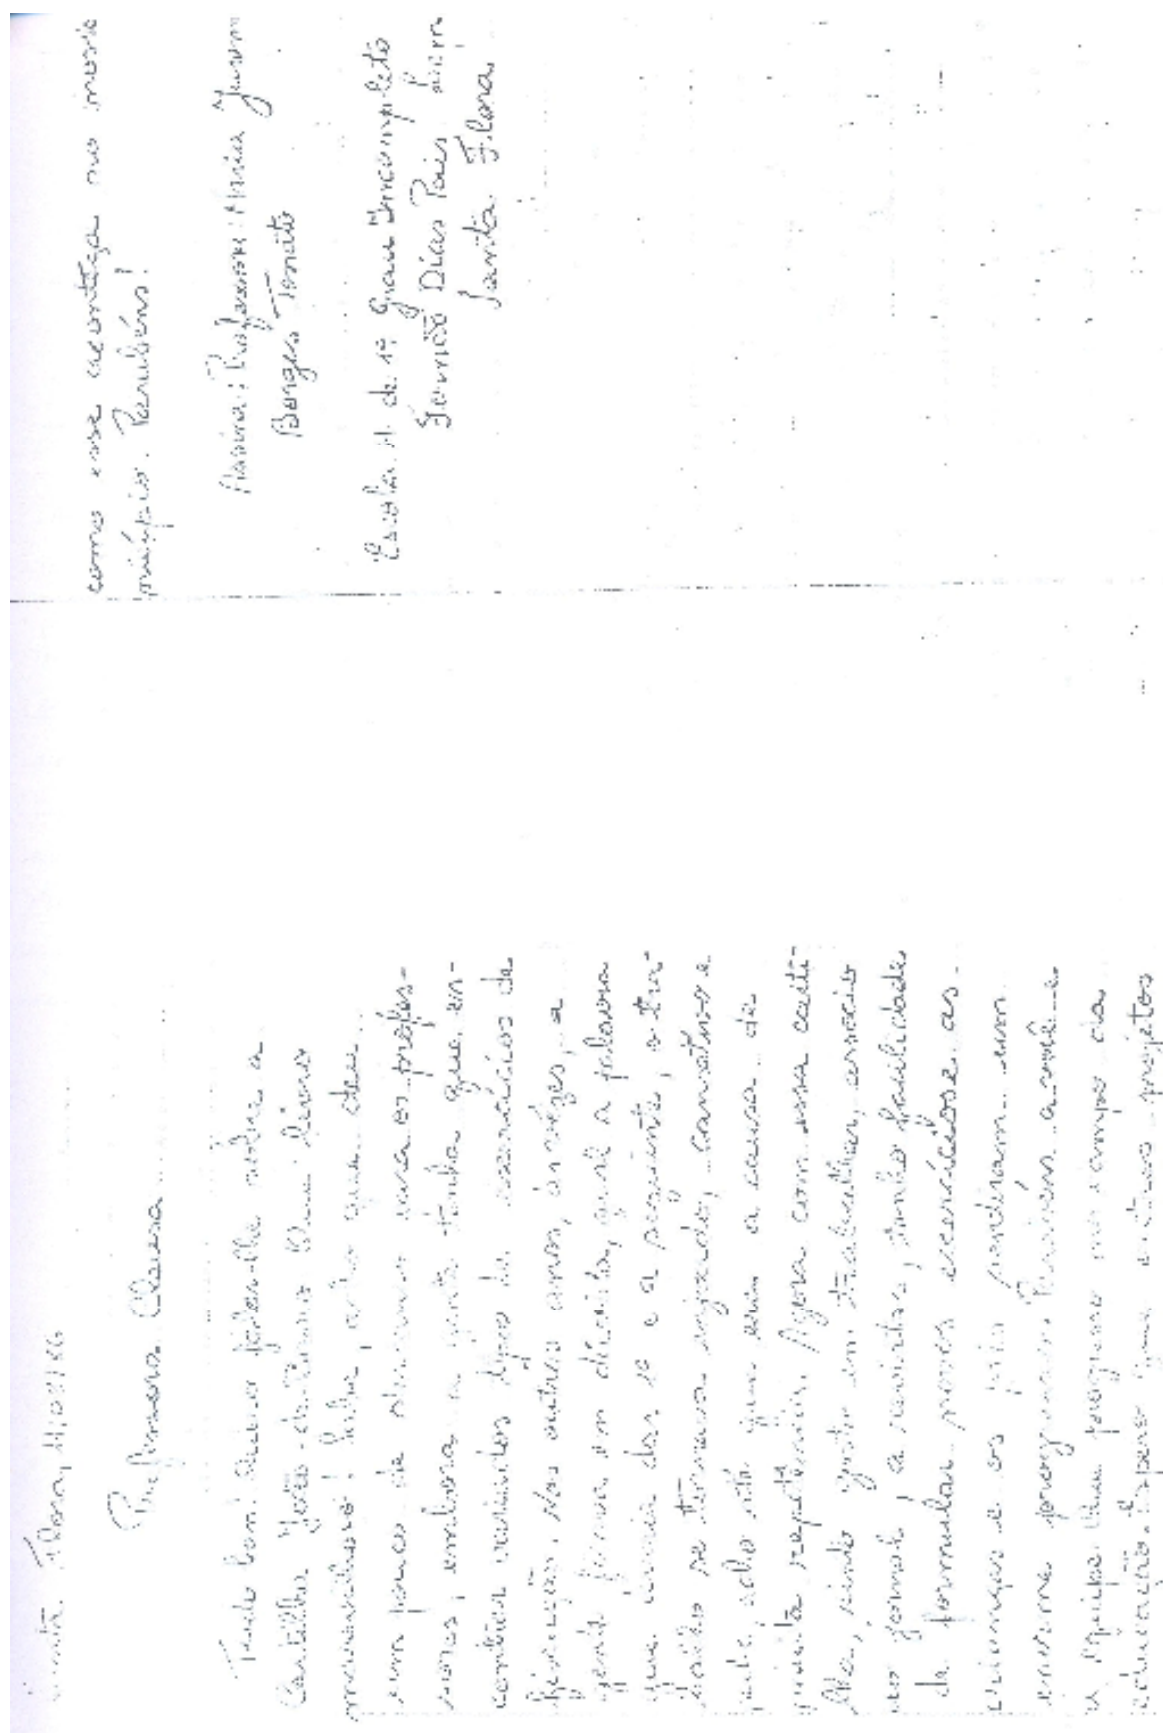 Santa Flora, 11/08/86
Professora Cleusa
Tudo bom! Quero falar-lhe sobre a
Cartilha João-de-Barro. Que livro
maravilhoso! Acho que deu
um pouco de descanso para os profes-
sores, embora a gente tenha que en-
contrar variados tipos de exercícios de
fixação. Nos outros anos, às vezes, a
gente ficava em dúvida, qual a palavra
que viria dar, e a seguinte, o tra-
balho se tornava enjoado, cansativo e
acho até que era a causa de
muita repetência. Agora com essa carti-
lha, sinto gosto em trabalhar, associo
ao jornal, a revistas, tenho facilidade
de formular novos exercícios e as
crianças e os pais sentiram um
enorme progresso. Parabéns a você e
a equipe. Que progresso no campo da
educação! Espero que outros projetos
como esse aconteça no nosso
município. Parabéns!
Assina: Professora: Maria
Borges
Escola M. de 1º Grau Incompleto
Fernão Dias Pais Leem
Santa Flora